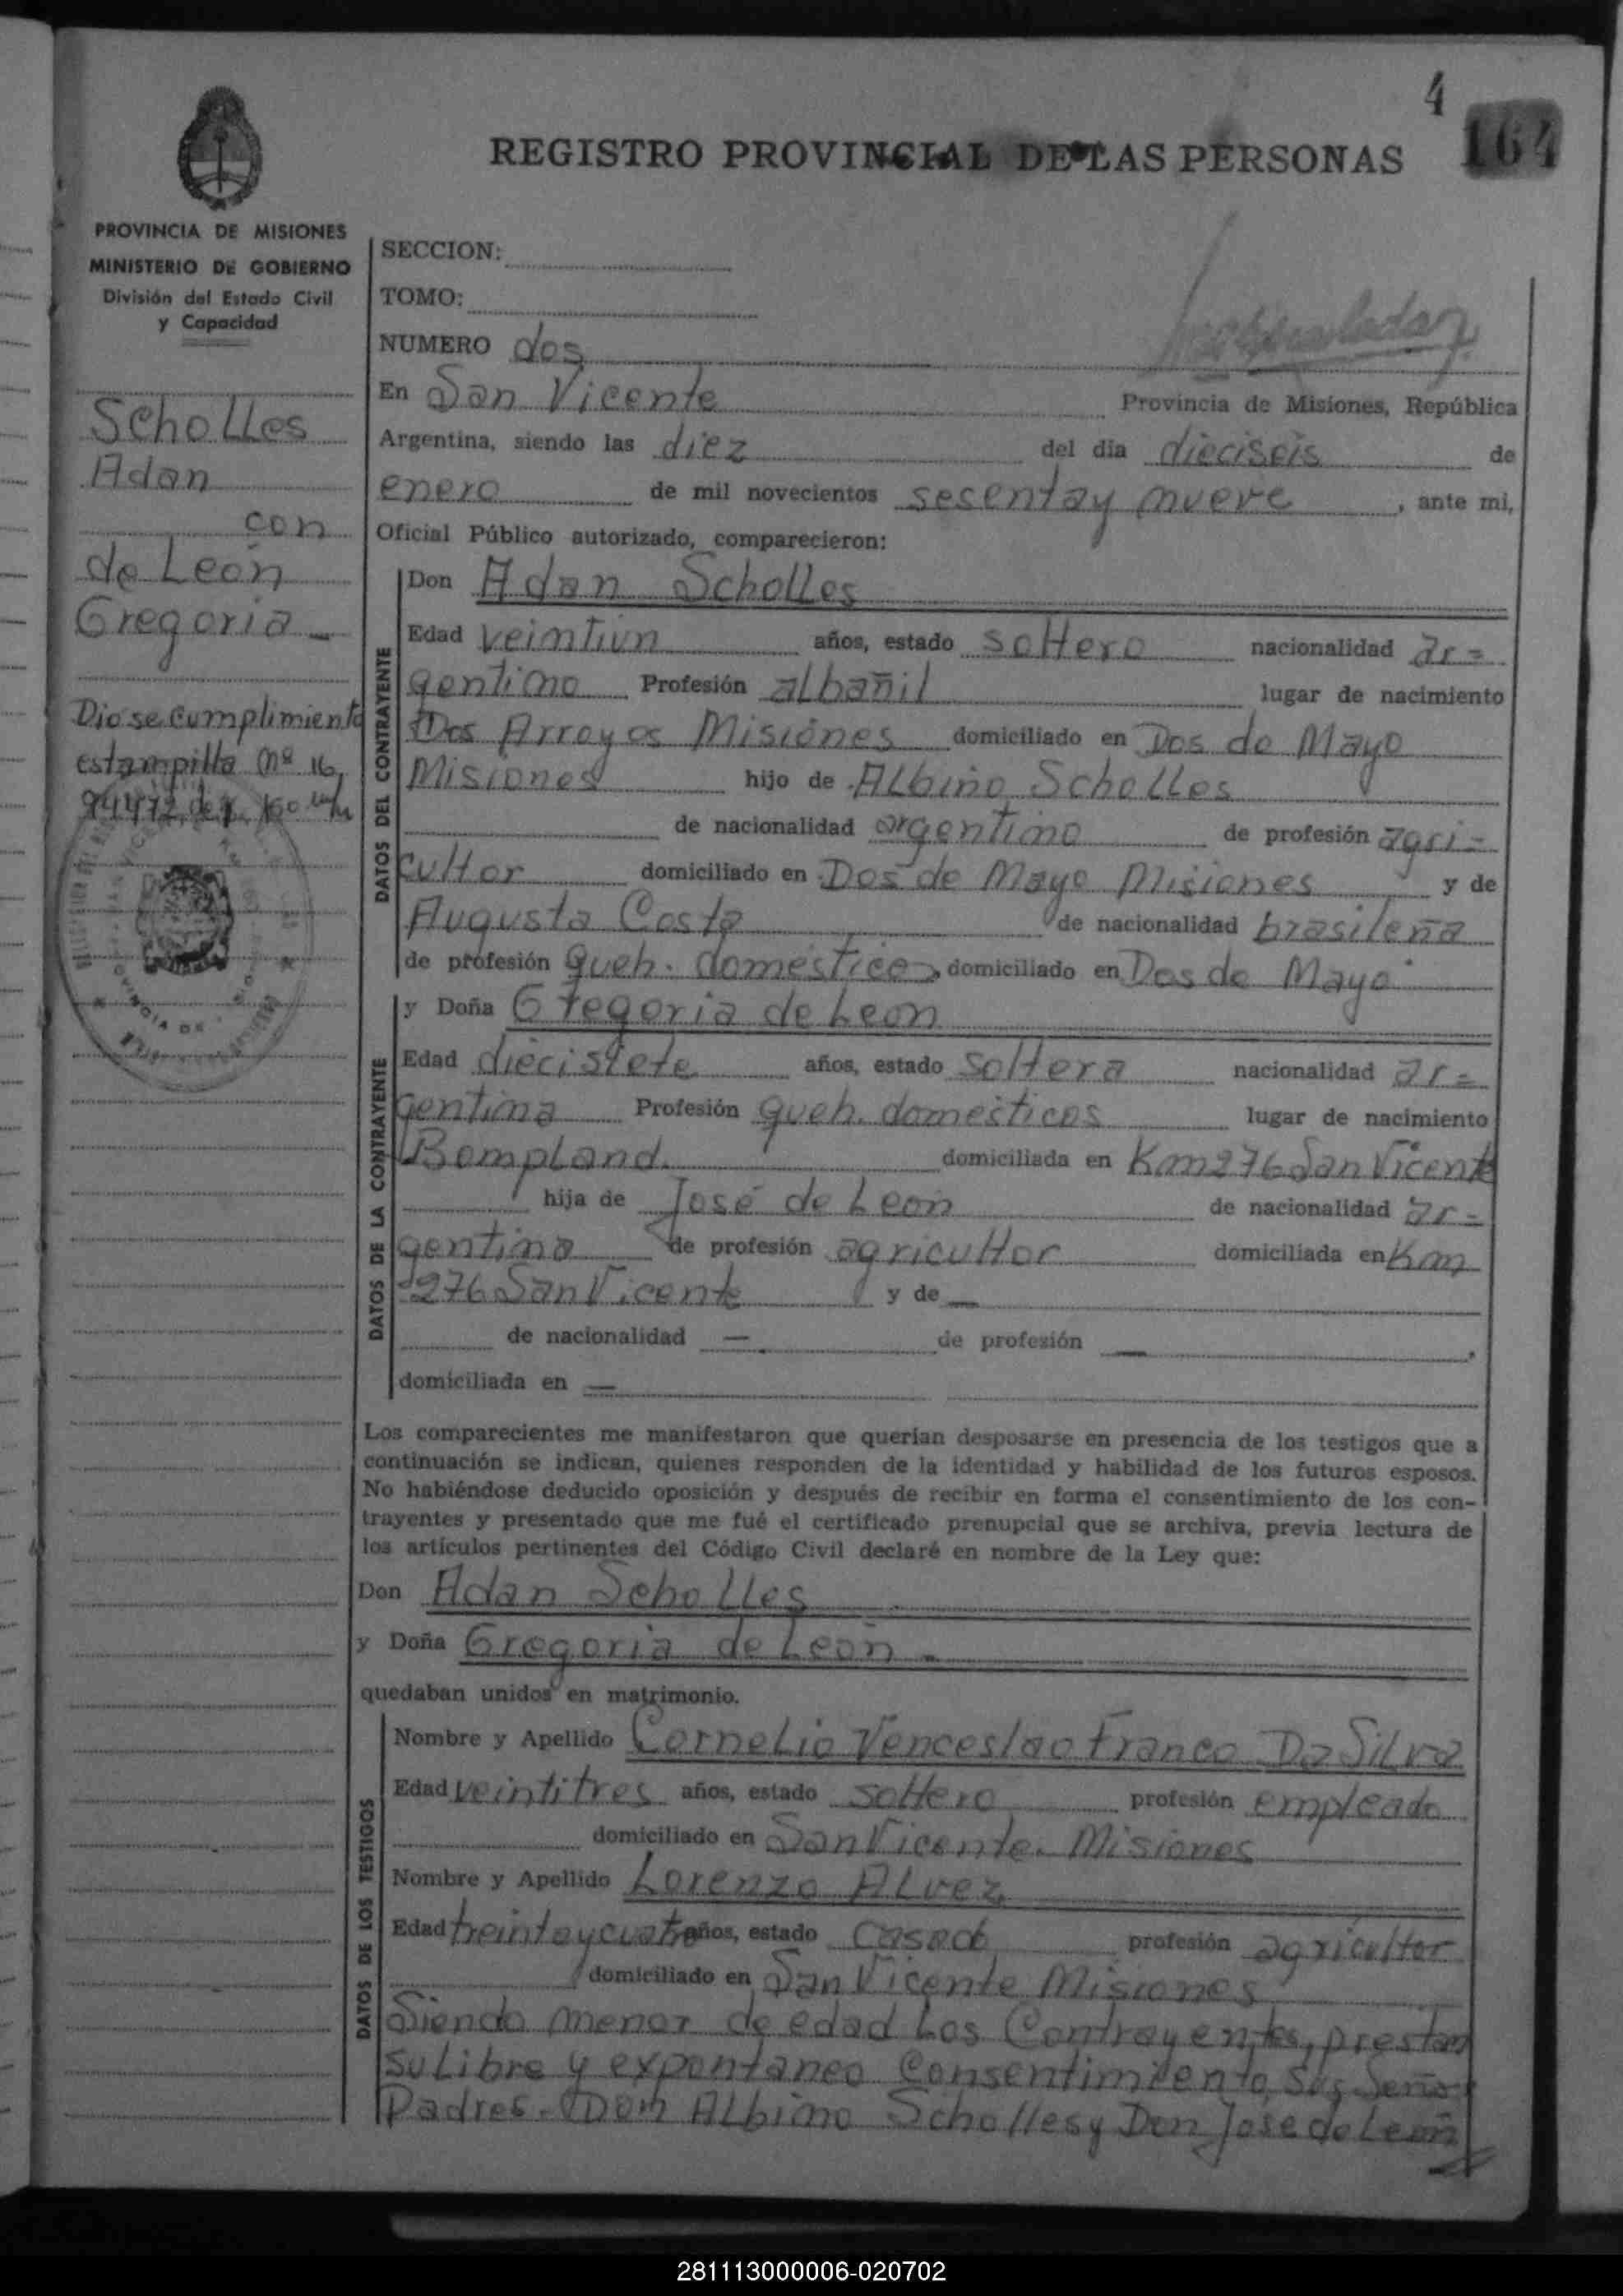 4
164
REGISTRO PROVINCIAL DE LAS PERSONAS
PROVINCIA DE MISIONES
MINISTERIO DE GOBIERNO
División del Estado Civil
y Capacidad
Scholles
Adan
con
de León
Gregoria
Diose cumplimiento
estampilla Nº 16
94472 de
SECCION:
TOMO:
NUMERO dos
En San Vicente Provincia de Misiones, República
Argentina, siendo las diez del día dieciseis de
enero de mil novecientos sesentay nueve, ante mi,
Oficial Público autorizado, comparecieron:
DATOS DEL CONTRAYENTE
Don Adan Scholles
Edad veintiun años, estado soltero nacionalidad ar=
gentino Profesión albañil lugar de nacimiento
Dos Arroyos Misiones domiciliado en Dos de Mayo
Misiones hijo de Albino Scholles
de nacionalidad argentino de profesión agri=
cultor domiciliado en Dos de Mayo Misiones y de
Augusta Costa de nacionalidad brasileña
de profesión Queh. domésticos, domiciliado en Dos de Mayo
DATOS DE LA CONTRAYENTE
y Doña Gregoria de León
Edad diecisiete años, estado soltera nacionalidad ar=
gentina Profesión queh. domésticos lugar de nacimiento
Bompland. domiciliada en Km 276 San Vicente
hija de José de León de nacionalidad ar=
gentino de profesión agricultor domiciliada en Km
276 San Vicente y de —
de nacionalidad — de profesión —,
domiciliada en —
Los comparecientes me manifestaron que querían desposarse en presencia de los testigos que a
continuación se indican, quienes responden de la identidad y habilidad de los futuros esposos.
No habiéndose deducido oposición y después de recibir en forma el consentimiento de los con-
trayentes y presentado que me fué el certificado prenupcial que se archiva, previa lectura de
los artículos pertinentes del Código Civil declaré en nombre de la Ley que:
Don Adan Scholles
y Doña Gregoria de León
quedaban unidos en matrimonio.
DATOS DE LOS TESTIGOS
Nombre y Apellido Cornelio Venceslao Franco Da Silva
Edad veintitres años, estado soltero profesión empleado
domiciliado en San Vicente. Misiones
Nombre y Apellido Lorenzo Alvez
Edad treintaycuatro años, estado Casado profesión agricultor
domiciliado en San Vicente Misiones
Siendo menor de edad Los Contrayentes, prestan
su Libre y expontaneo Consentimiento, Sus
Padres. Don Albino Scholles y Don Jose de León
281113000006-020702